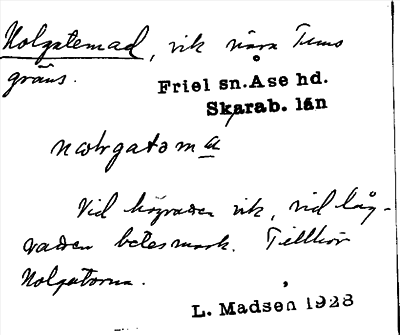 Nolgatemad, vik nära Tuns
gräns.
Friel sn. Åse hd.
Skarab. län
Vid högvatten vik, vid låg-
vatten betesmark. Tillhör
Nolgatorna.
L. Madsen 1928